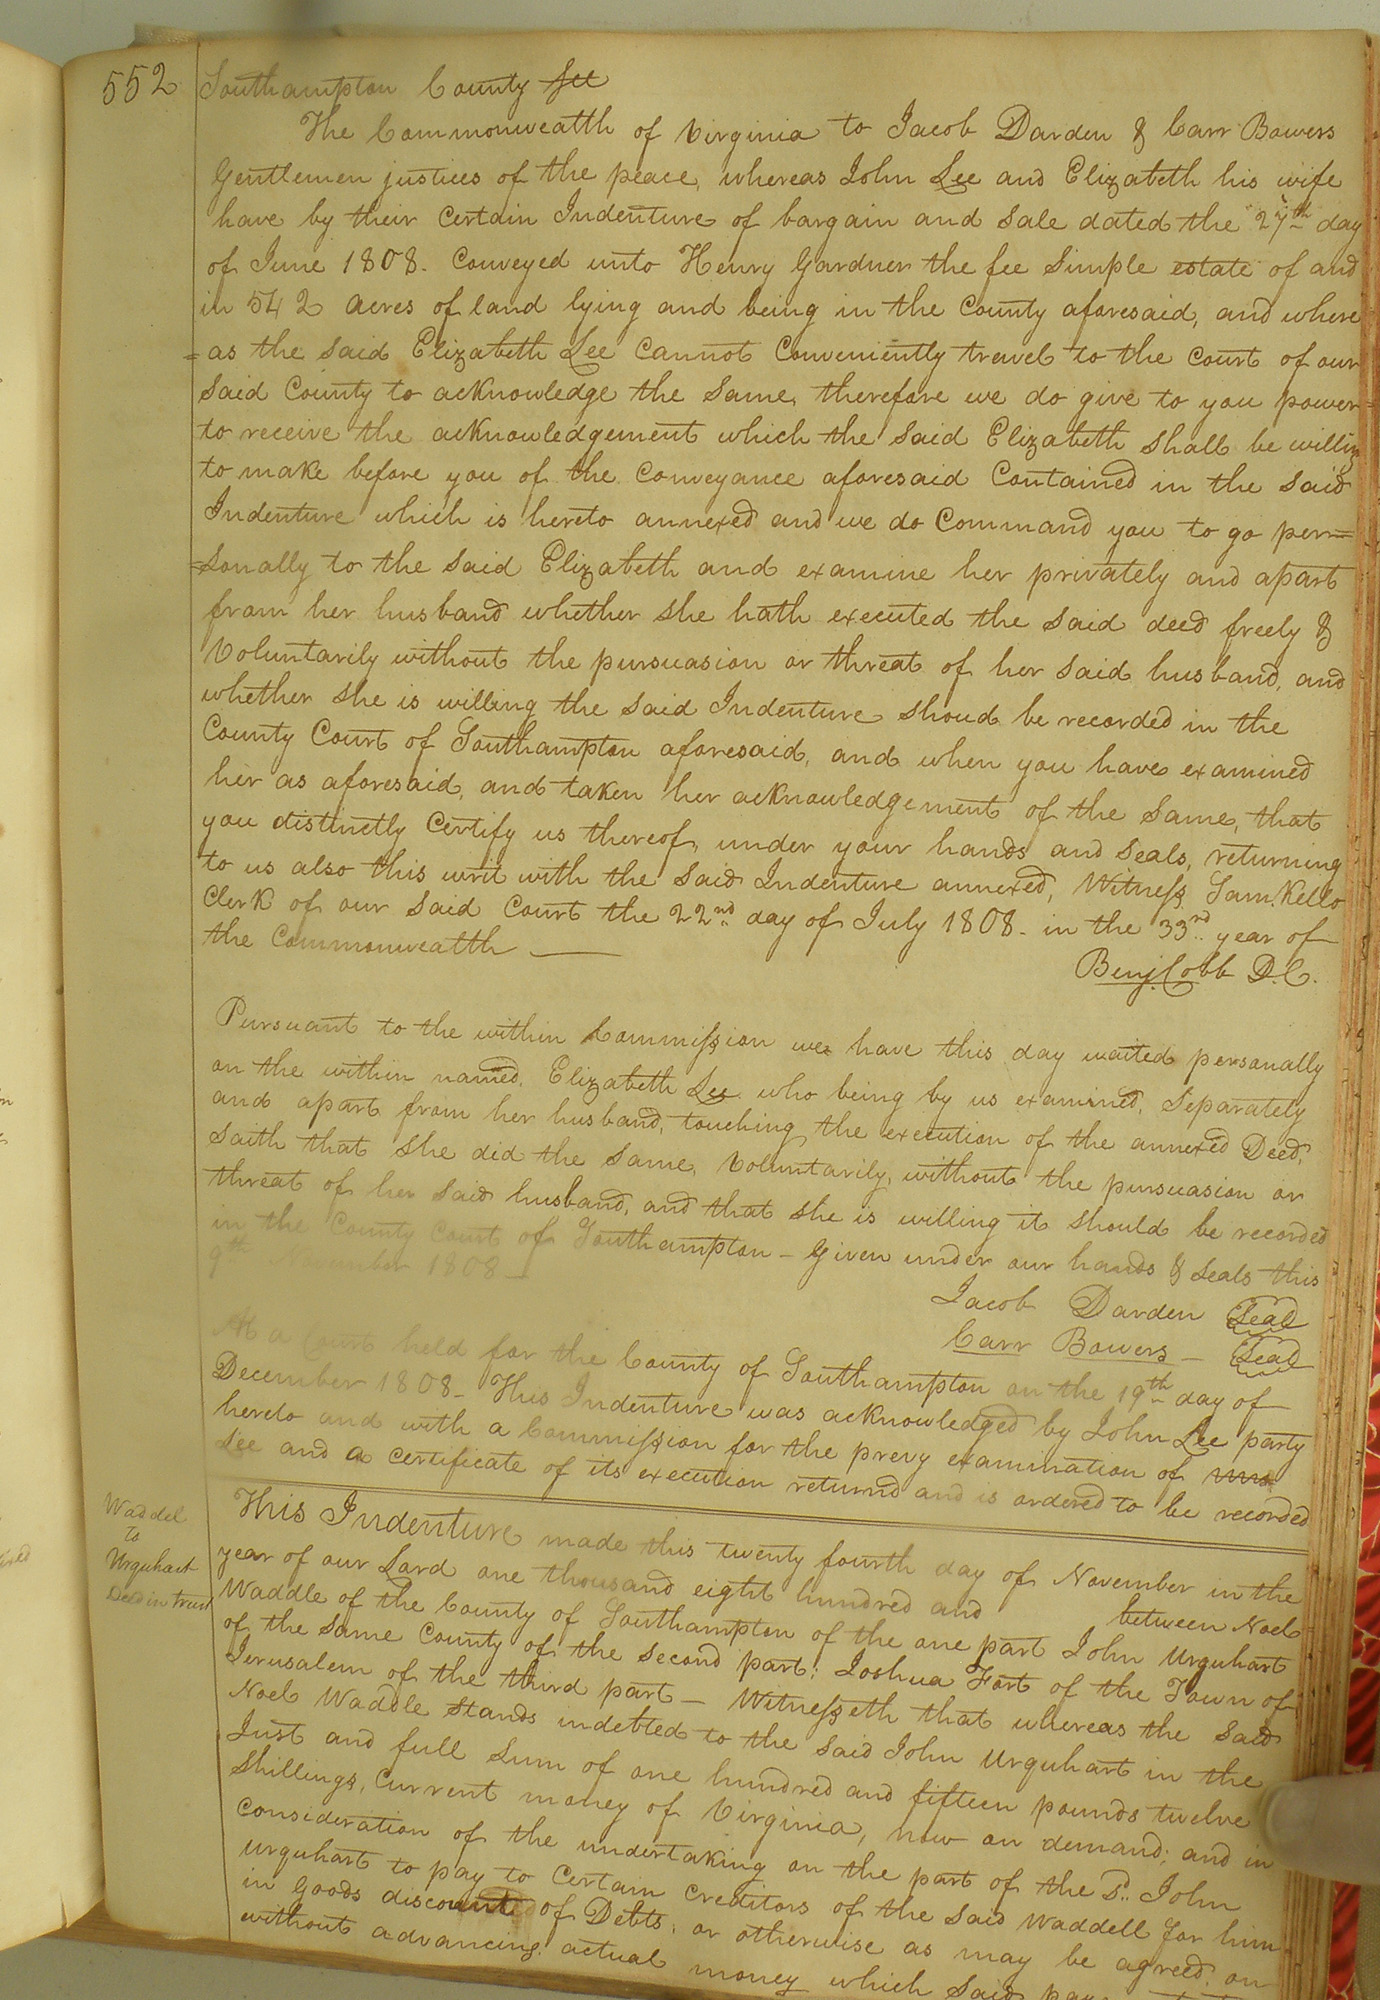 552
Southampton County Sct
The Commonwealth of Virginia to Jacob Darden & Carr Bowers
Gentlemen justices of the peace, whereas John Lee and Elizabeth his wife
have by their Certain Indenture of bargain and Sale dated the 27th day
of June 1808. Conveyed unto Henry Gardner the fee Simple estate of and
in 542 acres of land lying and being in the County aforesaid, and where
=as the Said Elizabeth Lee Cannot Conveniently travel to the Court of our
Said County to acknowledge the Same, therefore we do give to you power
to receive the acknowledgement which the Said Elizabeth Shall be willing
to make before you of the Conveyance aforesaid Contained in the Said
Indenture which is hereto annexed and we do Command you to go per=
=sonally to the Said Elizabeth and examine her privately and apart
from her husband whether She hath executed the Said deed freely &
Voluntarily without the pursuasion or threat of her Said husband, and
whether She is willing the Said Indenture Shoud be recorded in the
County Court of Southampton aforesaid, and when you have examined
her as aforesaid, and taken her acknowledgement of the Same, that
you distinctly Certify us thereof, under your hands and Seals, returning
to us also this writ with the Said Indenture annexed, Witness Sam. Kello
Clerk of our Said Court the 22nd day of July 1808. in the 33rd year of
the Commonwealth
Benj. Cobb D.C.
Pursuant to the within Commission we have this day waited personally
on the within named, Elizabeth Lee who being by us examined, Separately
and apart from her husband, touching the execution of the annexed Deed,
Saith that She did the Same, Voluntarily, without the pursuasion or
threat of her Said husband, and that She is willing it Should be recorded
in the County Court of Southampton – Given under our hands & Seals this
9th November 1808 –
Jacob Darden Seal
Carr Bowers – Seal
At a Court held for the County of Southampton on the 19th day of
December 1808 – This Indenture was acknowledged by John Lee party
hereto and with a Commission for the prevy examination of
Lee and a Certificate of its execution returnd and is ordered to be recorded
Waddel
to
Urquhart
Deed in trust
This Indenture made this twenty fourth day of November in the
year of our Lord one thousand eight hundred and between Noel
Waddle of the County of Southampton of the one part John Urquhart
of the Same County of the Second part; Joshua Fort of the Town of
Jerusalem of the third part – Witnesseth that whereas the Said
Noel Waddle Stands indebted to the Said John Urquhart in the
Just and full Sum of one hundred and fifteen pounds twelve
Shillings, Current money of Virginia, now on demand; and in
Consideration of the undertaking on the part of the Sd. John
Urquhart to pay to Certain Creditors of the Said Waddell for him
in Goods discounted of Debts, or otherwise as may be agreed on
without advancing actual money which Said